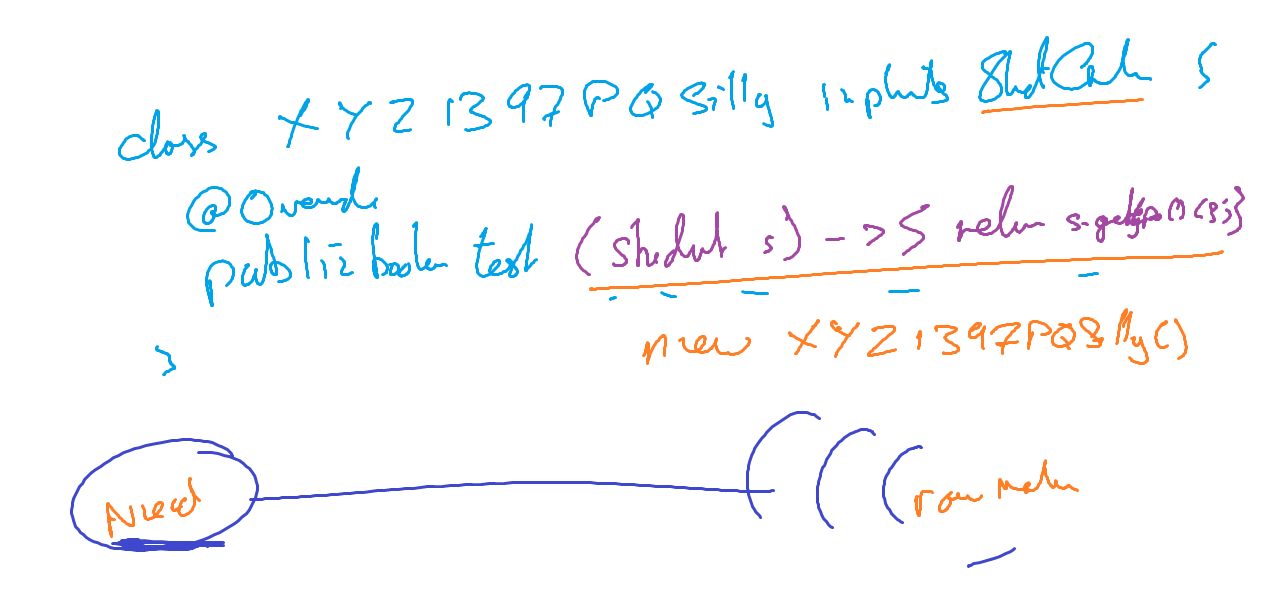 class XYZ1397PQSilly implements {
@Override
public boolean test (Student s) -> { return s.get
new XYZ1397PQSilly()
}
Need
raw